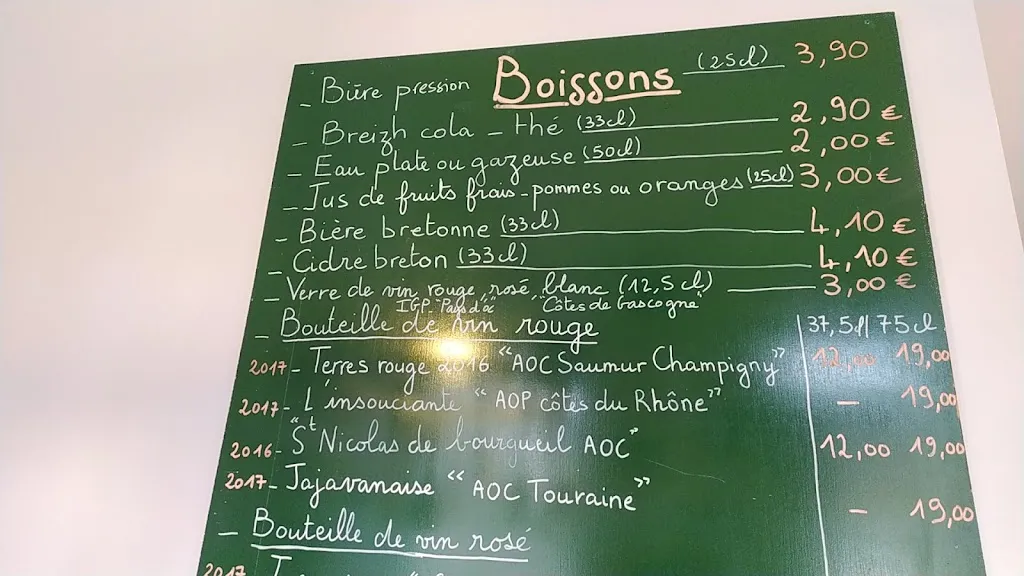 Boissons
- Bière pression (25cl) 3,90
- Breizh cola - thé (33cl) 2,90 €
- Eau plate ou gazeuse (50cl) 2,00 €
- Jus de fruits frais - pommes ou oranges (25cl) 3,00 €
- Bière bretonne (33cl) 4,10 €
- Cidre breton (33cl) 4,10 €
- Verre de vin rouge, rosé, blanc (12,5 cl) 3,00 €
IGP "Pays d'oc" "Côtes de Gascogne"
- Bouteille de vin rouge 37,5cl 75cl
2017 - Terres rouge 2016 "AOC Saumur Champigny" 12,00 19,00
2017 - L'insouciante "AOP côtes du Rhône" - 19,00
2016 - "St Nicolas de bourgueil AOC" 12,00 19,00
2017 - Jajavanaise "AOC Touraine" - 19,00
- Bouteille de vin rosé
2017